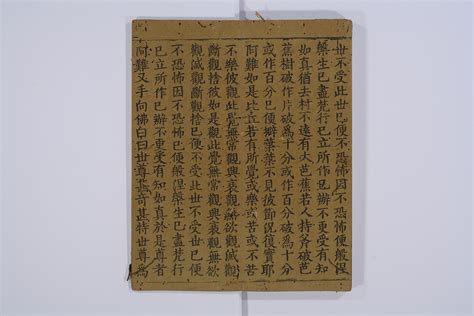 世不受此世已便不恐怖因不恐怖便般涅
槃生已盡梵行已立所作已辦不更受有知
如真猶去村不遠有大芭蕉若人持斧破芭
蕉樹破作片破為十分或作百分破為十分
或作百分已便擗葉葉不見彼節況復實耶
阿難如是比丘若有所覺或樂或苦或不苦
不樂彼觀此覺無常觀興衰觀無欲觀滅觀
斷觀捨彼如是觀此覺無常觀興衰觀無欲
觀滅觀斷觀捨已便不受此世不受世已便
不恐怖因不恐怖已便般涅槃生已盡梵行
已立所作已辦不更受有知如真於是尊者
阿難叉手向佛白曰世尊甚奇甚特世尊為